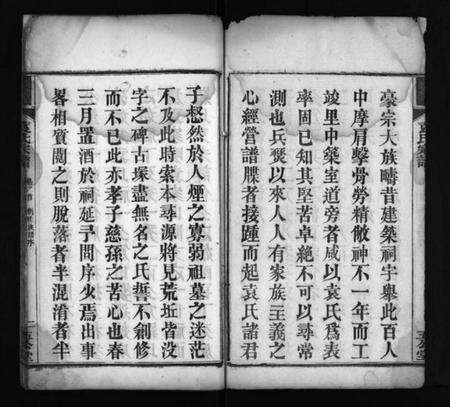 豪宗大族疇昔建築祠宇舉此百人
中摩肩擊骨勞精敝神不一年而工
竣里中築室道旁者咸以袁氏爲表
率固已知其堅苦卓絶不可以尋常
測也兵燹以來人人有家族主義之
心經營譜牒者接踵而起袁氏諸君
子惄然於人煙之寡弱祖墓之迷茫
不及此時索本尋源將見荒坵皆没
字之碑古塚盡無名之氏誓不剏修
而不已此亦孝子慈孫之苦心也春
三月置酒於祠延予問序少焉出事
畧相質閲之則脱落者半混淆者半